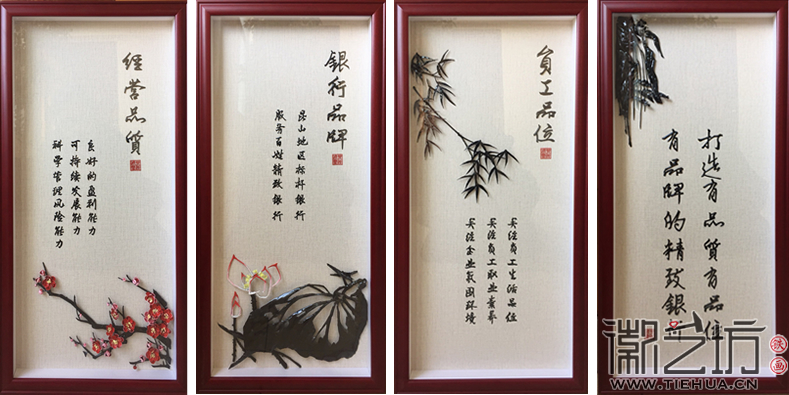 經营品質
良好的盈利能力
可持续发展能力
科学管理风险能力
銀行品牌
昆山地区标杆银行
服务百姓精致银行
員工品位
关注员工生活品位
关注员工职业素养
关注企业氛围环境
打造有品質有品位
有品牌的精致銀行
徽艺坊
铁画
WWW.TIEHUA.CN